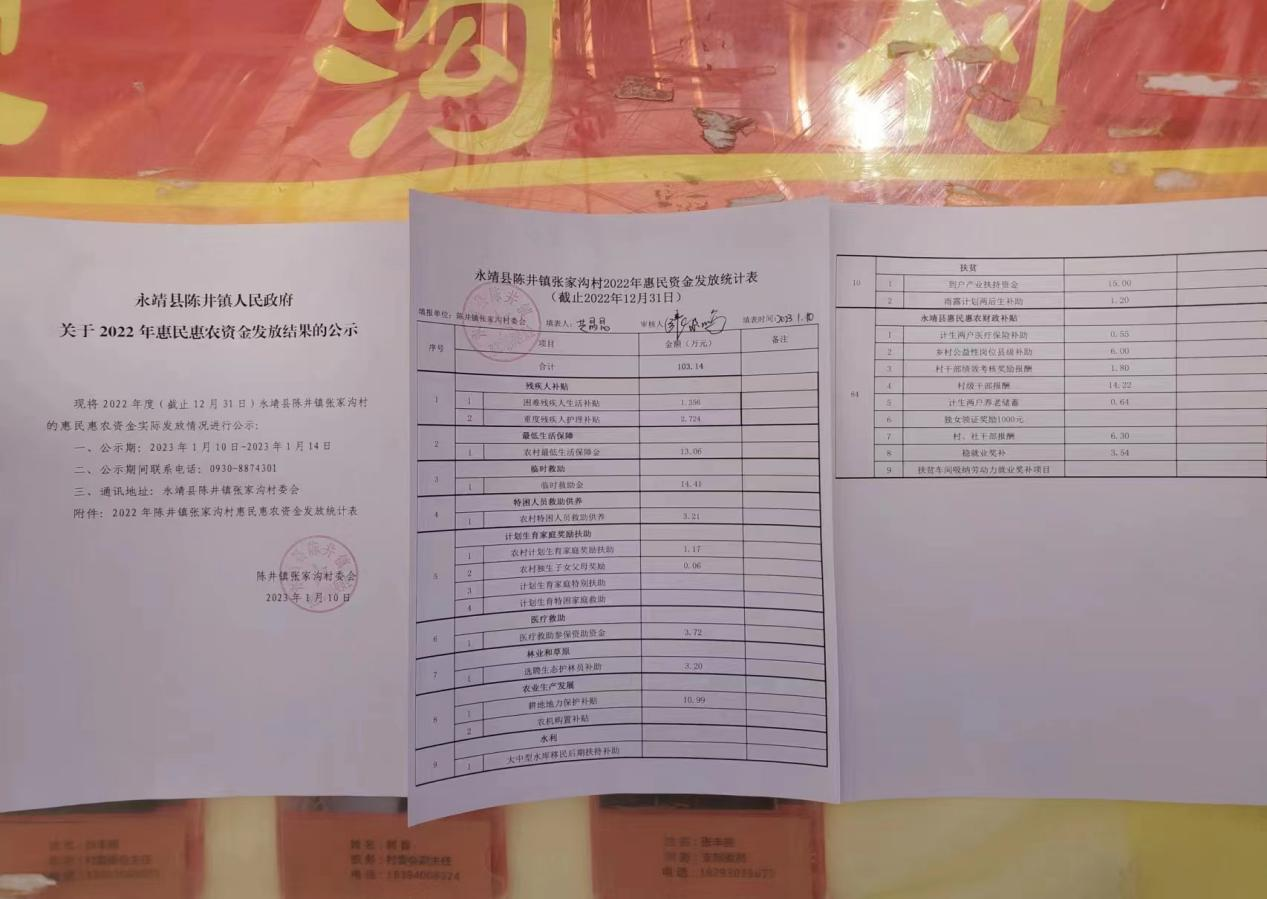 沟村
永靖县陈井镇人民政府
关于 2022 年惠民惠农资金发放结果的公示
现将 2022 年度（截止 12 月 31 日）永靖县陈井镇张家沟村
的惠民惠农资金实际发放情况进行公示:
一、公示期: 2023 年 1 月 10 日-2023 年 1 月 14 日
二、公示期间联系电话: 0930-8874301
三、通讯地址: 永靖县陈井镇张家沟村委会
附件: 2022 年陈井镇张家沟村惠民惠农资金发放统计表
陈井镇张家沟村委会
2023 年 1 月 10 日
永靖县陈井镇张家沟村2022年惠民资金发放统计表
（截止2022年12月31日）
填报单位: 陈井镇张家沟村委会 填表人: 审核人: 填表时间:2023.1.10
序号 项目 金额（万元） 备注
合计 103.14
1 残疾人补贴
1 困难残疾人生活补贴 1.356
2 重度残疾人护理补贴 2.724
2 最低生活保障
1 农村最低生活保障金 13.06
3 临时救助
1 临时救助金 14.41
4 特困人员救助供养
1 农村特困人员救助供养 3.21
5 计划生育家庭奖励扶助
1 农村计划生育家庭奖励扶助 1.17
2 农村独生子女父母奖励 0.06
3 计划生育家庭特别扶助
4 计划生育特困家庭救助
6 医疗救助
1 医疗救助参保资助资金 3.72
7 林业和草原
1 选聘生态护林员补助 3.20
8 农业生产发展
1 耕地地力保护补贴 10.99
2 农机购置补贴
9 水利
1 大中型水库移民后期扶持补助
10 扶贫
1 到户产业扶持资金 15.00
2 雨露计划两后生补助 1.20
84 永靖县惠民惠农财政补贴
1 计生两户医疗保险补助 0.55
2 乡村公益性岗位县级补助 6.00
3 村干部绩效考核奖励报酬 1.80
4 村级干部报酬 14.22
5 计生两户养老储蓄 0.64
6 独女领证奖励1000元
7 村、社干部报酬 6.30
8 稳就业奖补 3.54
9 扶贫车间吸纳劳动力就业奖补项目
职务: 村委会主任
姓名:
职务: 村委会副主任
电话: 18394008324
姓名: 张丰
职务:
电话: